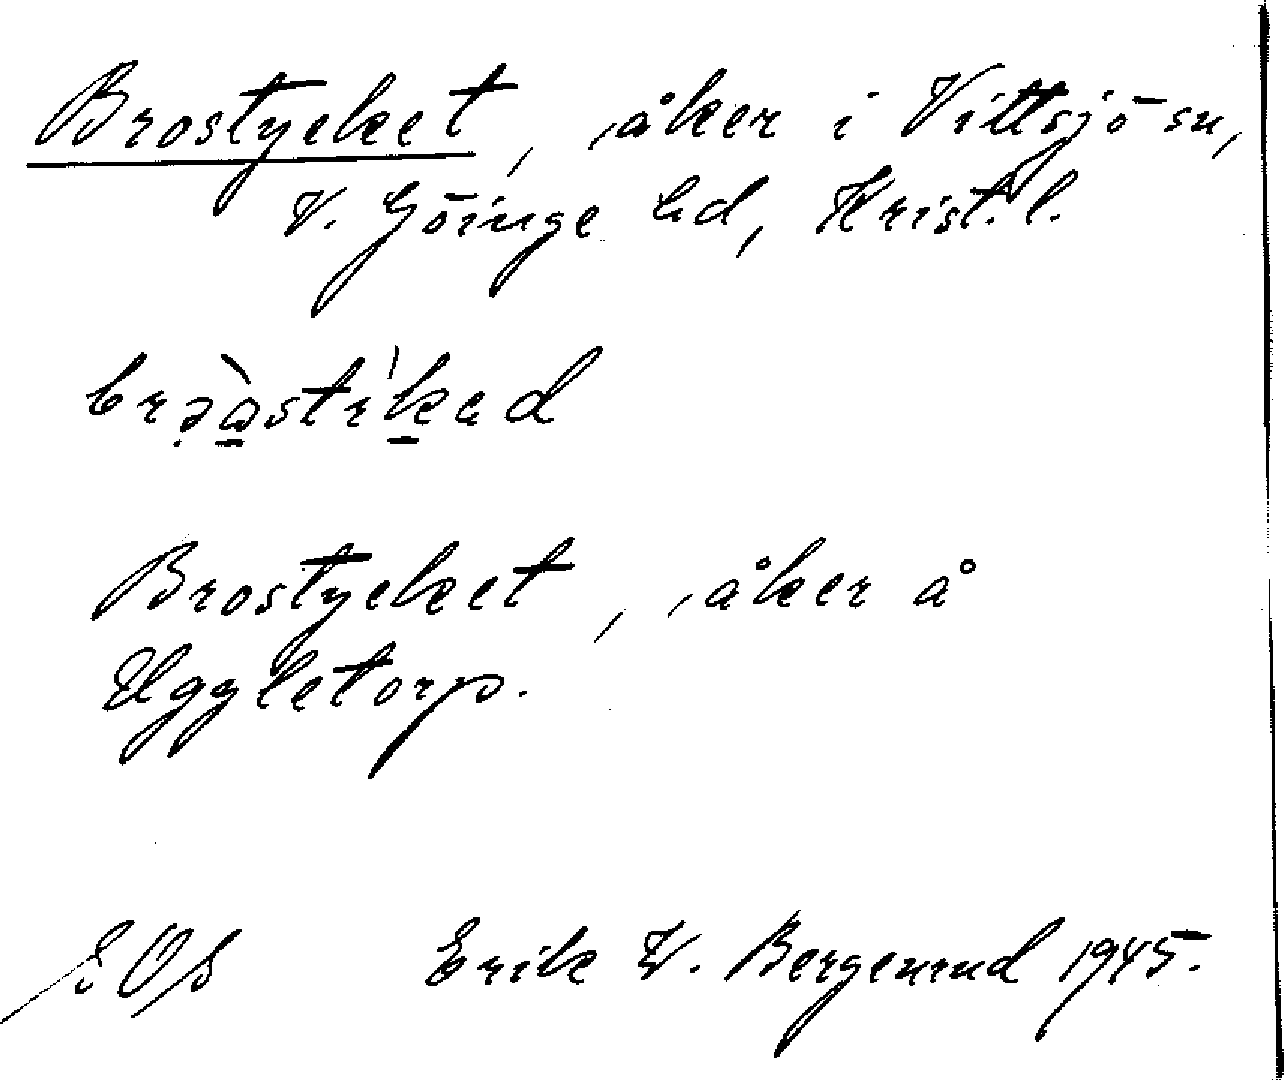 Brostycket, åker i Vittsjö sn,
V. Göinge hd, Krist. l.
Brostycket, åker å
Uggletorp.
Erik W. Bergenrud 1945.